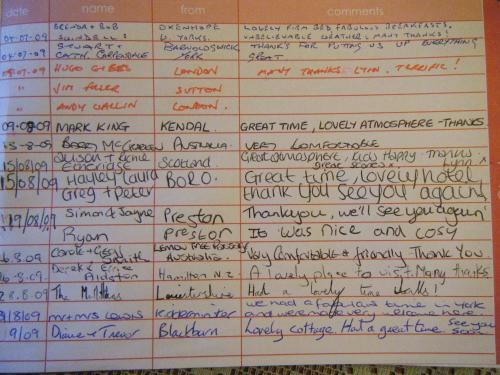 date name from comments
BRENDA + BOB OXENHOPE LOVELY FIRM BED, FABULOUS BREAKFASTS,
04-07-09 W. YORKS. UNBELIEVABLE WEATHER, MANY THANKS!
STUART + BARNOLDSWICK THANKS FOR PUTTING US UP EVERYTHING
04/07/09 CATH CARPENDALE YORK GREAT
09 HUGO LONDON MANY THANKS LYNN. TERRIFIC!
" JIM SUTTON
" ANDY WALLIN LONDON.
09-08-09 MARK KING KENDAL. GREAT TIME, LOVELY ATMOSPHERE - THANKS
-8-09 BARRY AUSTRALIA VERY COMFORTABLE
15/08/09 Scotland Great atmosphere, kids happy - Thanks
great scones Lynn
15/08/09 Hayley Laura BORO. Great time, lovely hotel
Greg + Peter thank you see you again
19/08/09 Simon & Jayne Preston Thankyou, we'll see you again
Ryan Preston It was nice and cosy
8.09 Carole + Gerry Smith LEMON TREE Australia. Very Comfortable & friendly Thank You
26-8.09 Derek & Hamilton N.Z. A lovely place to visit. Many thanks
28.8.09 The Leicestershire Had a lovely time
we had a fabulous time in York
/8/09 mr + mrs Lewis Kidderminster and were made very welcome here
/9/09 Diane + Trevor Blackburn Lovely cottage. Had a great time see you soon